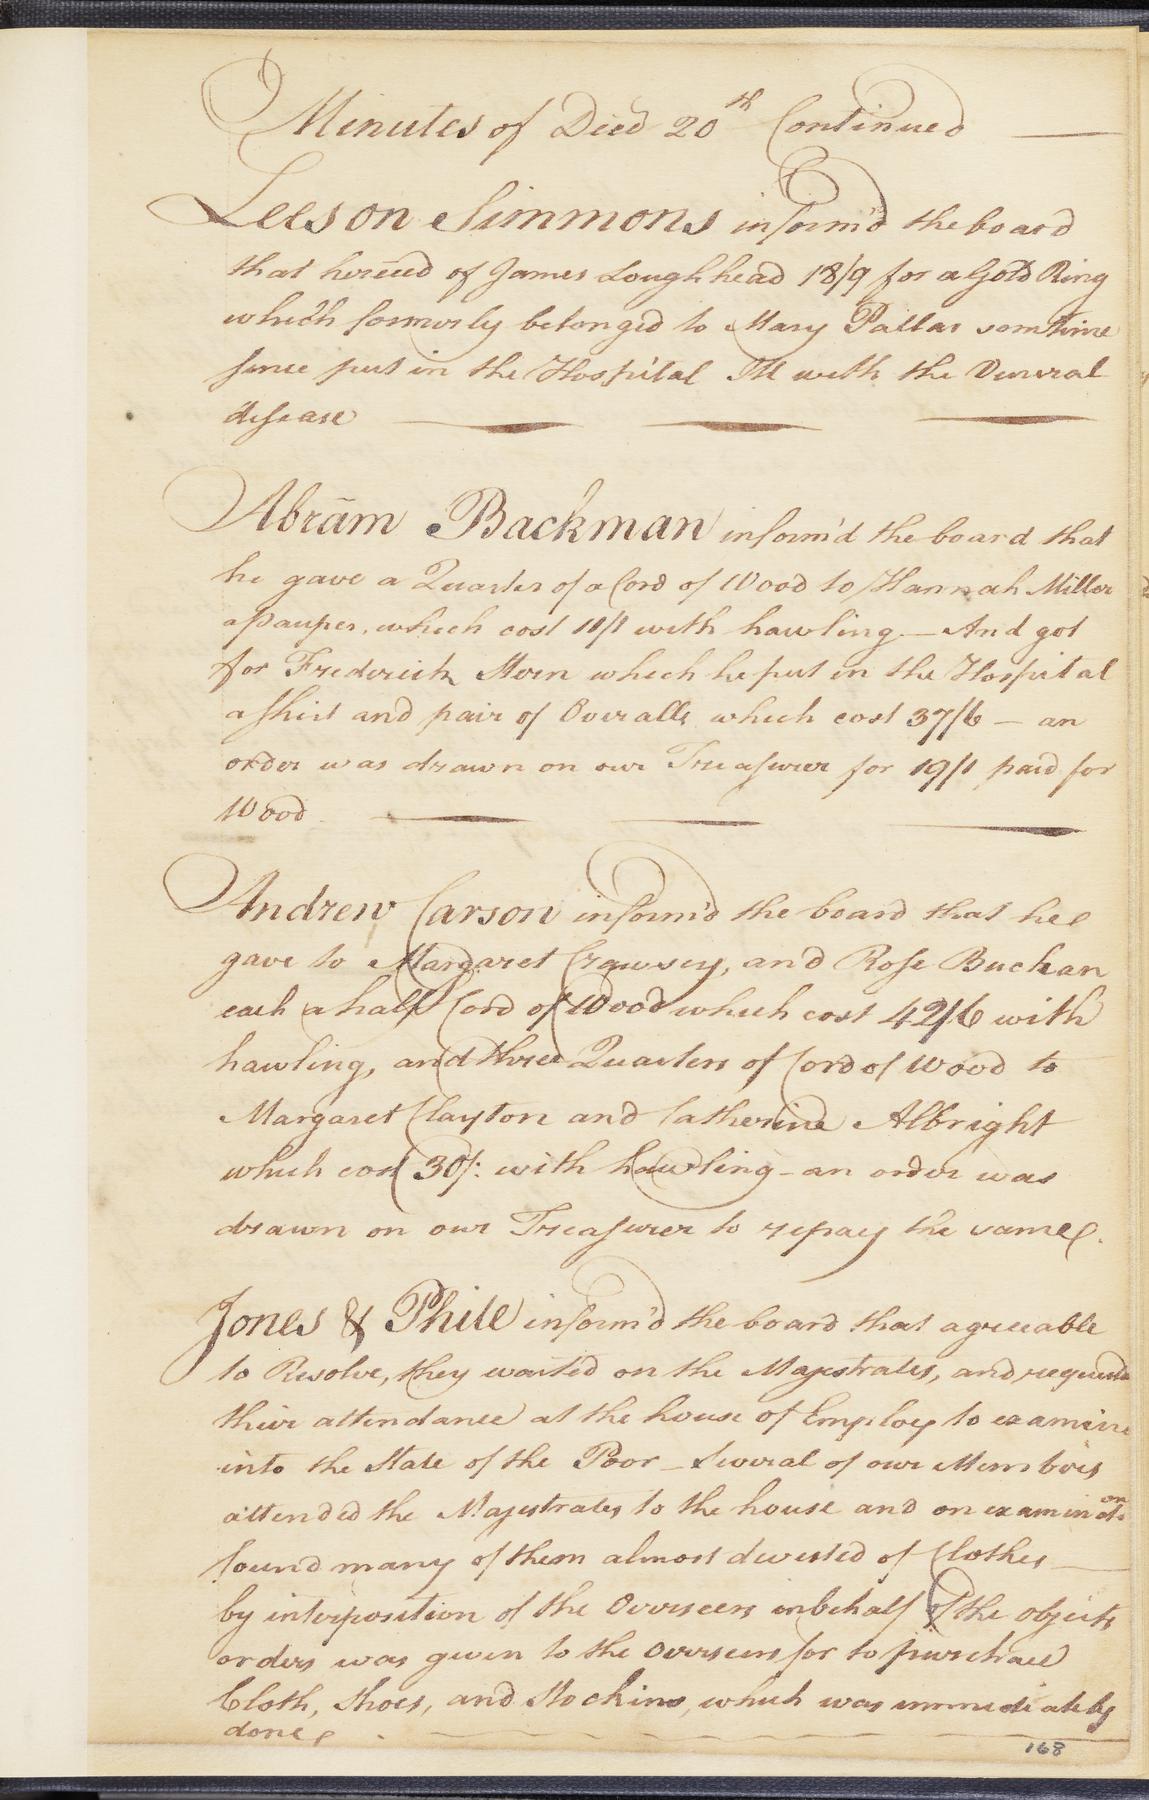 Minutes of Decd 20th Continued
Leeson Simmons inform'd the board
that he recd of James Loughhead 18/9 for a Gold Ring
which formerly belonged to Mary Pallas somtime
since put in the Hospital Ill with the Veneral
disease
Abram Backman inform'd the board that
he gave a Quarter of a Cord of Wood to Hannah Miller
a Pauper, which cost 11/1 with hawling — And got
for Frederick Stern which he put in the Hospital
a shirt and pair of Overalls which cost 37/6 — an
order was drawn on our Treasurer for 19/1 paid for
Wood
Andrew Carson inform'd the board that he
gave to Margaret Crawsey, and Rose Buchan
each a half Cord of Wood which cost 42/6 with
hawling, and three Quarters of Cord of Wood to
Margaret Clayton and Catherine Albright
which cost 30/: with hawling - an order was
drawn on our Treasurer to repay the same.
Jones & Phile inform'd the board that agreeable
to Resolve, they waited on the Majestrates, and requested
their attendance at the house of Employ to examine
into the State of the Poor — Several of our Members
attended the Majestrates to the house and on examination
found many of them almost divested of Clothes
by interposition of the Overseers in behalf of the objects
orders was given to the Overseers for to purchase
Cloth, Shoes, and Stockins, which was immediately
done
168